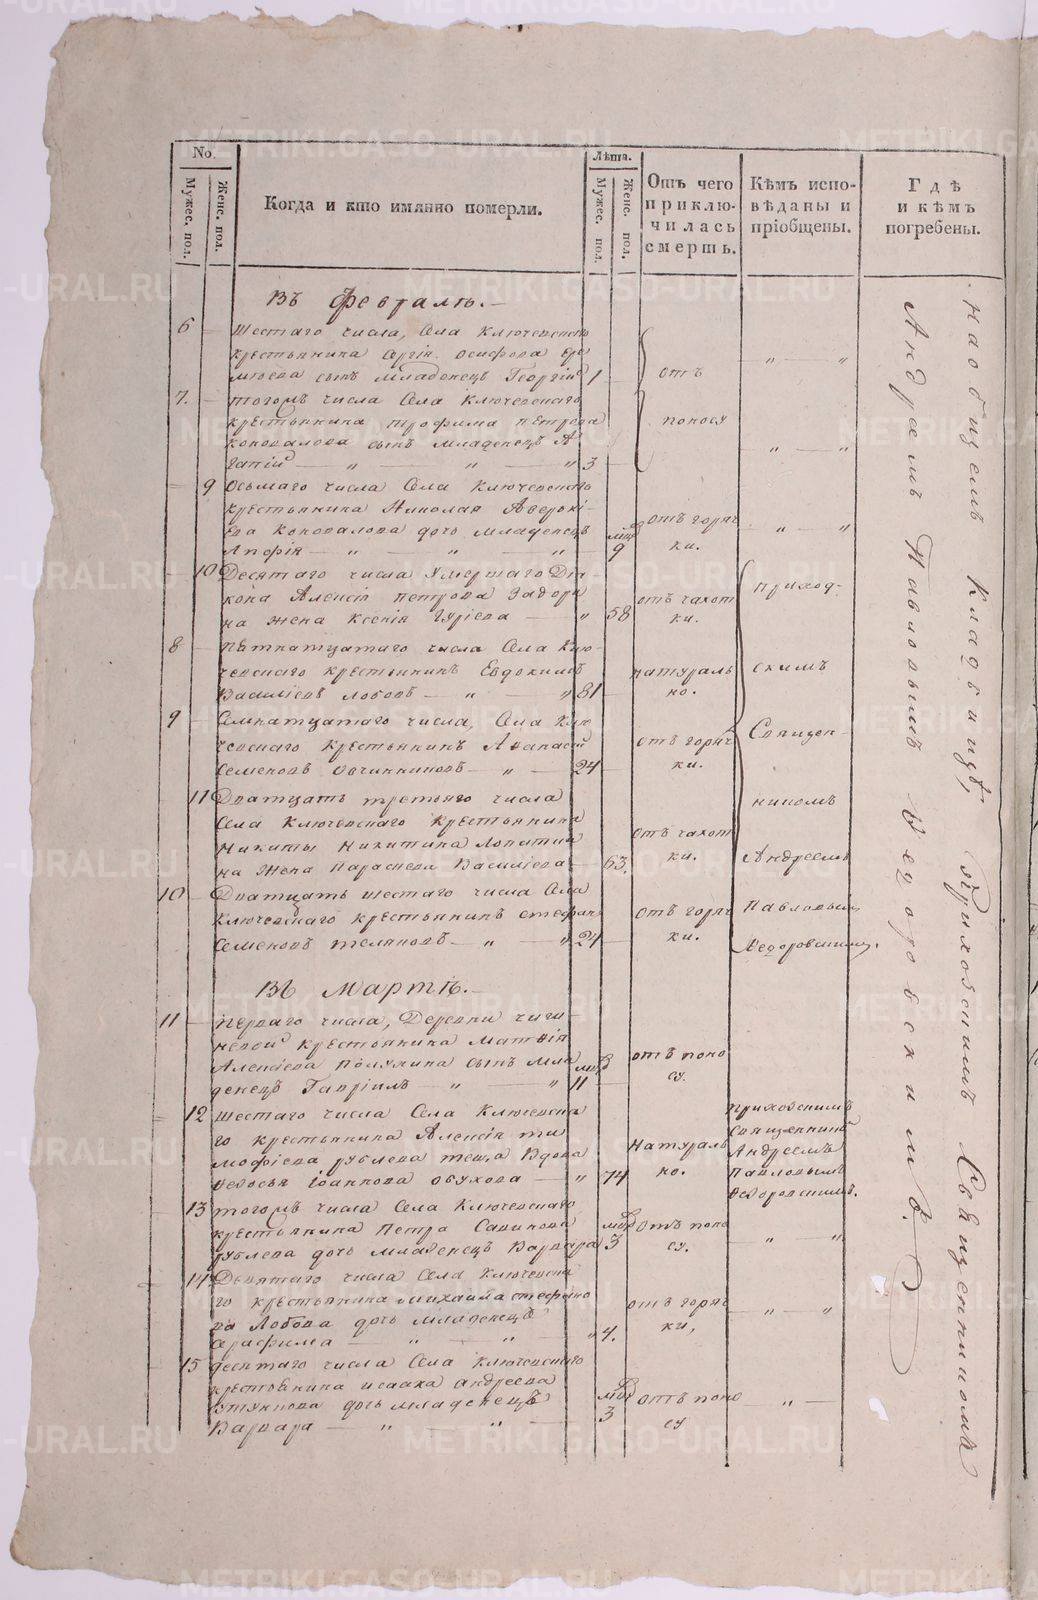 No.
Мужес. пол.
Женс. пол.
Когда и кто имянно померли.
Лѣта.
Мужес. пол.
Женс. пол.
Отъ чего приклю-чилась смерть.
Кѣмъ испо-вѣданы и пріобщены.
Гдѣ и кѣмъ погребены.
Въ Февралѣ.
6 Шестаго числа, Села Ключевскаго
крестьянина Сергія Осифова Ере
мѣева сынъ младенецъ Георгій 1
отъ
7. тогожъ числа Села Ключевскаго
крестьянина трофима петрова
коновалова сынъ младенецъ А
гапій — " — " — " 3
поносу
9 Осьмаго числа Села Ключевскаго
крестьянина Николая Аверькі-
ева Коновалова дочь младенецъ
— " — " — " 9
отъ горяч
ки.
10 Десятаго числа Умершаго Діа
кона Алексія петрова Задори
на жена Ксенія Гуріева — " 58
отъ чахот
ки.
8 пятнатцатаго числа Села Клю-
чевскаго крестьянинъ Евдокимъ
Василіевъ Лобовъ — " — " 81
натураль
но.
9 Семнатцатаго числа, Села Клю
чевскаго крестьянинъ Афанасій
Семеновъ Овчинниковъ — " — 24
отъ горяч
ки.
11 Дватцать третьяго числа
Села Ключевскаго крестьянина
Никиты Никитина Лопати
на жена Параскева Василіева 63.
отъ чахот
ки.
10 Дватцать шестаго числа Села
Ключевскаго крестьянинъ стефанъ
Семеновъ теляновъ — " — " 24
отъ горяч
ки.
приход-
скимъ
Священ-
никомъ
Андреемъ
Павловымъ
Ѳедоровскимъ.
Въ Мартѣ.
11 перваго числа, Деревни чиги
невой крестьянина Матвія
Алексіева Полухина сынъ мла
денецъ Гавріилъ — " — " 11
отъ поно
су.
12 шестаго числа Села Ключевска
го крестьянина Алексія ти
мофіева рублева теща Вдова
Ѳедосья Іоаннова Обухова — " 74
натураль
но.
приходскимъ
Священникомъ
Андреемъ
Павловымъ
Ѳедоровскимъ.
13 тогожъ числа Села Ключевскаго
крестьянина Петра Савинова
рублева дочь младенецъ Варвара 3
отъ поно
су.
14 Девятаго числа Села Ключевска
го крестьянина михаила стефано
ва Лобова дочь младенецъ
Серафима — " — " — " 4.
отъ горяч
ки,
15 десятаго числа Села Ключевскаго
крестьянина исаака андреева
дочь младенецъ
Варвара — " — " — 3
отъ поно
су
на общемъ Кладбищѣ, Приходскимъ Священникомъ
Андреемъ Павловымъ Ѳедоровскимъ.
METRIKI.GASO-URAL.RU